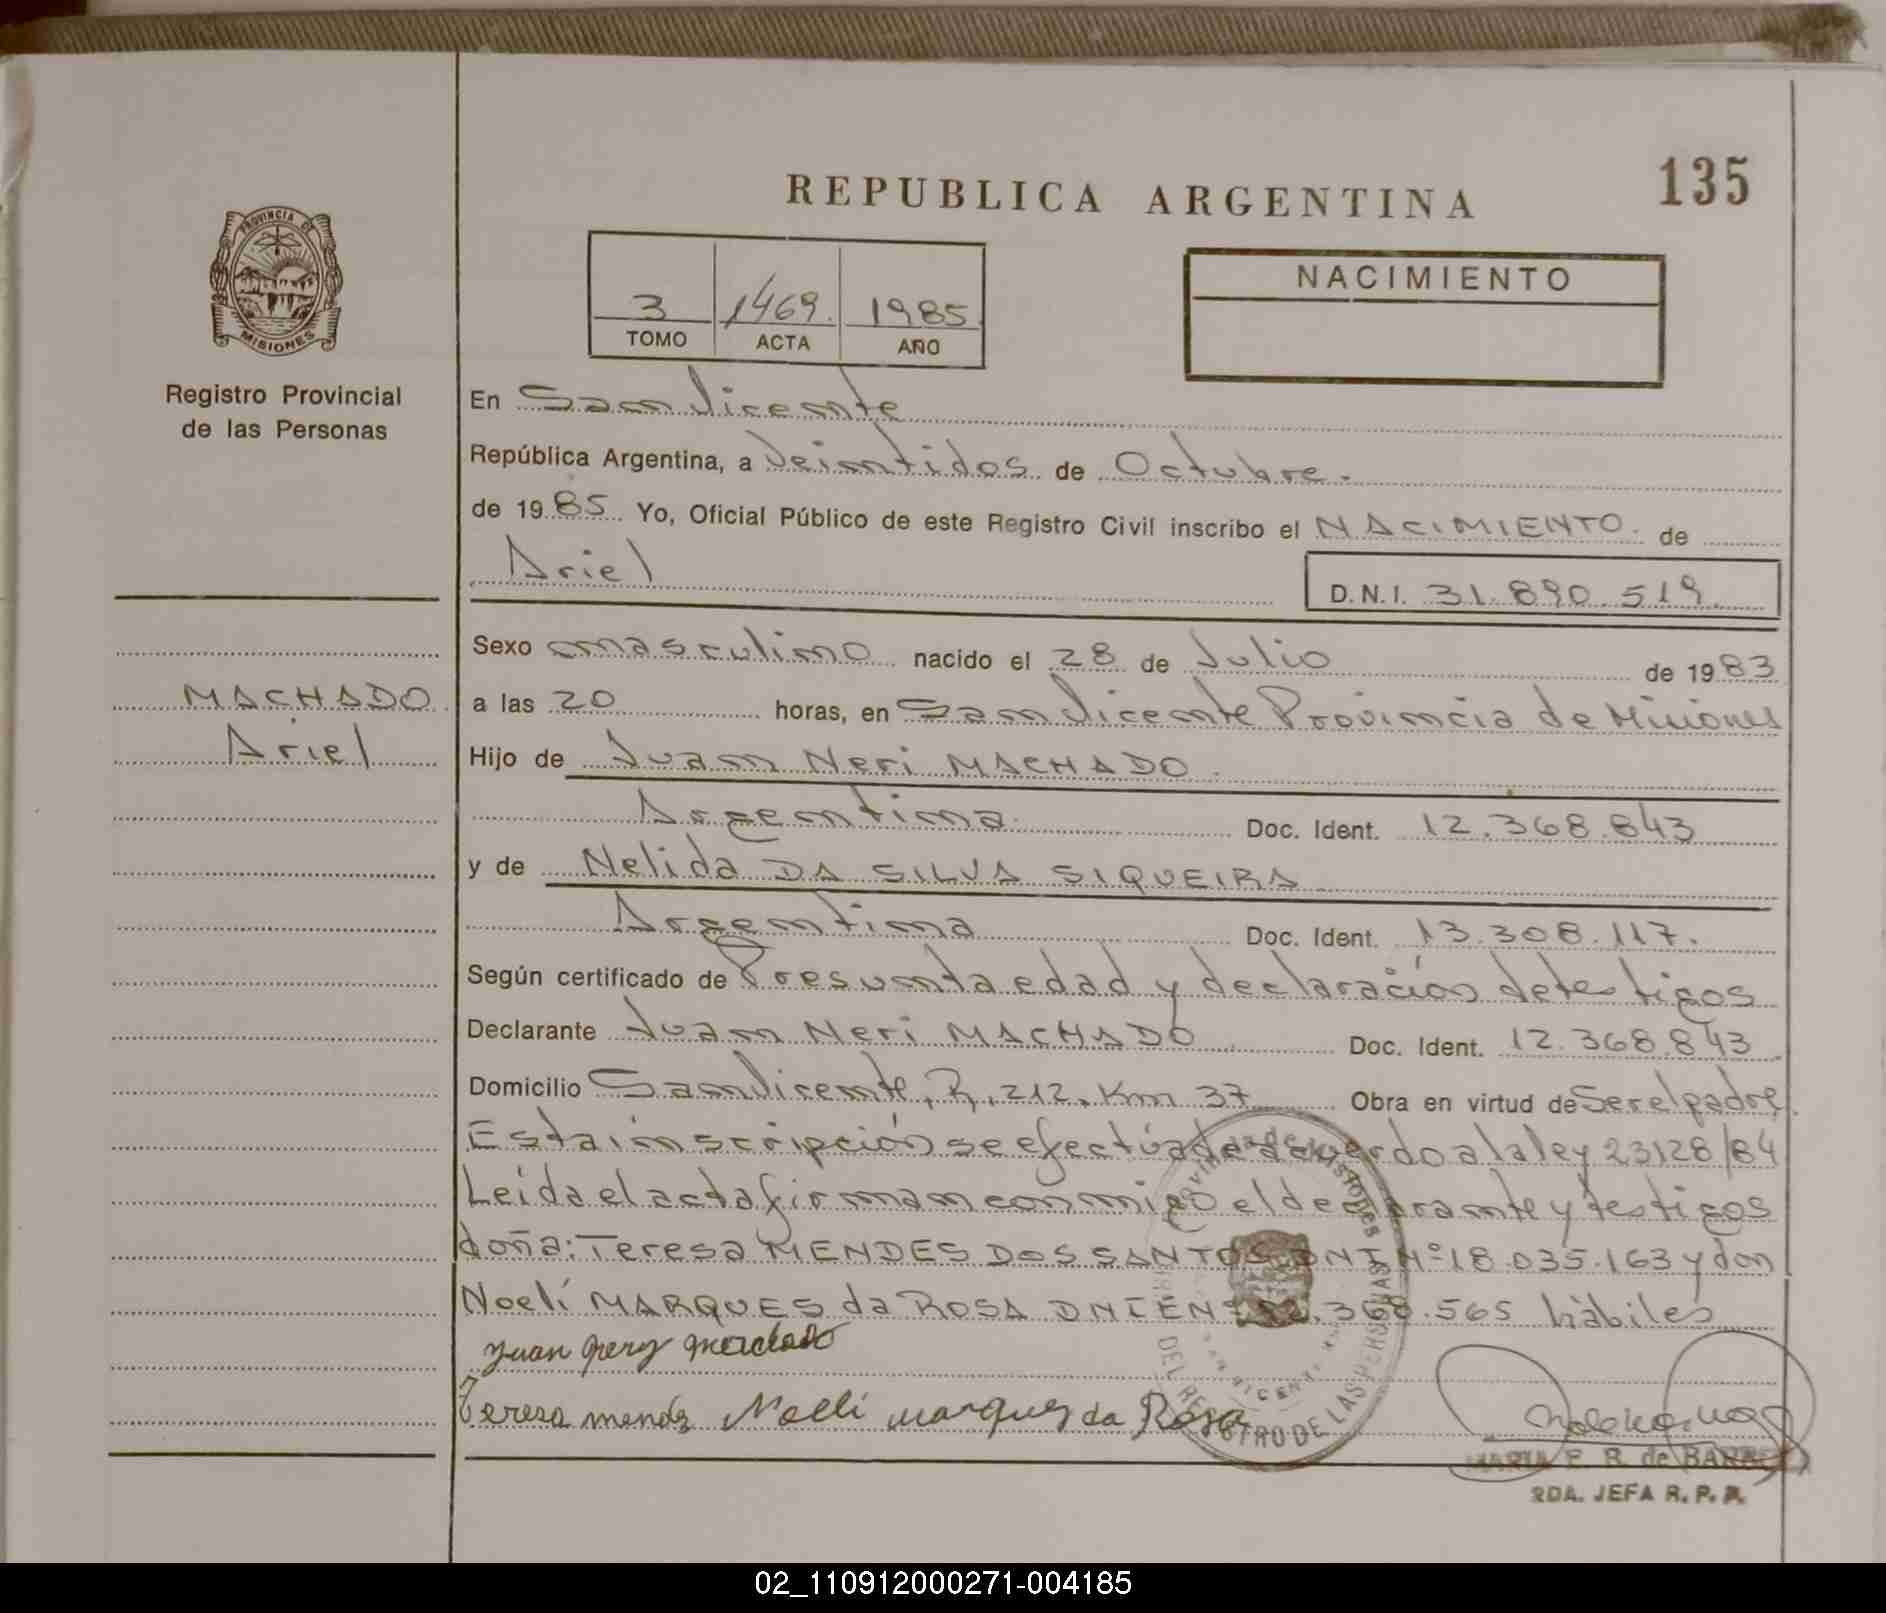 135
REPUBLICA ARGENTINA
PROVINCIA DE
MISIONES
Registro Provincial
de las Personas
NACIMIENTO
3 1469. 1985.
TOMO ACTA AÑO
En San Vicente
República Argentina, a Veintidos de Octubre.
de 1985 Yo, Oficial Público de este Registro Civil inscribo el NACIMIENTO. de
Ariel
D.N.I. 31.890.519.
MACHADO
Ariel
Sexo masculino nacido el 28 de Julio de 1983
a las 20 horas, en San Vicente Provincia de Misiones
Hijo de Juan Neri MACHADO.
Argentina. Doc. Ident. 12.368.843
y de Nelida DA SILVA SIQUEIRA
Argentina Doc. Ident. 13.308.117.
Según certificado de Presunta edad y declaración de testigos
Declarante Juan Neri MACHADO Doc. Ident. 12.368.843
Domicilio San Vicente, R. 212. Km 37 Obra en virtud de Ser el padre.
Esta inscripción se efectúa de acuerdo a la ley 23128/84
Leída el acta firman conmigo el declarante y testigos
doña: Teresa MENDES DOS SANTOS DNI Nº 18.035.163 y don
Noelí MARQUES da ROSA DNI EN 12.368.565 hàbiles
Juan Nery Machado
Teresa mendez Noelí marques da Rosa
DEL REGISTRO DE LAS PERSONAS
MARIA E. R. de
2DA. JEFA R. P. P.
02_110912000271-004185